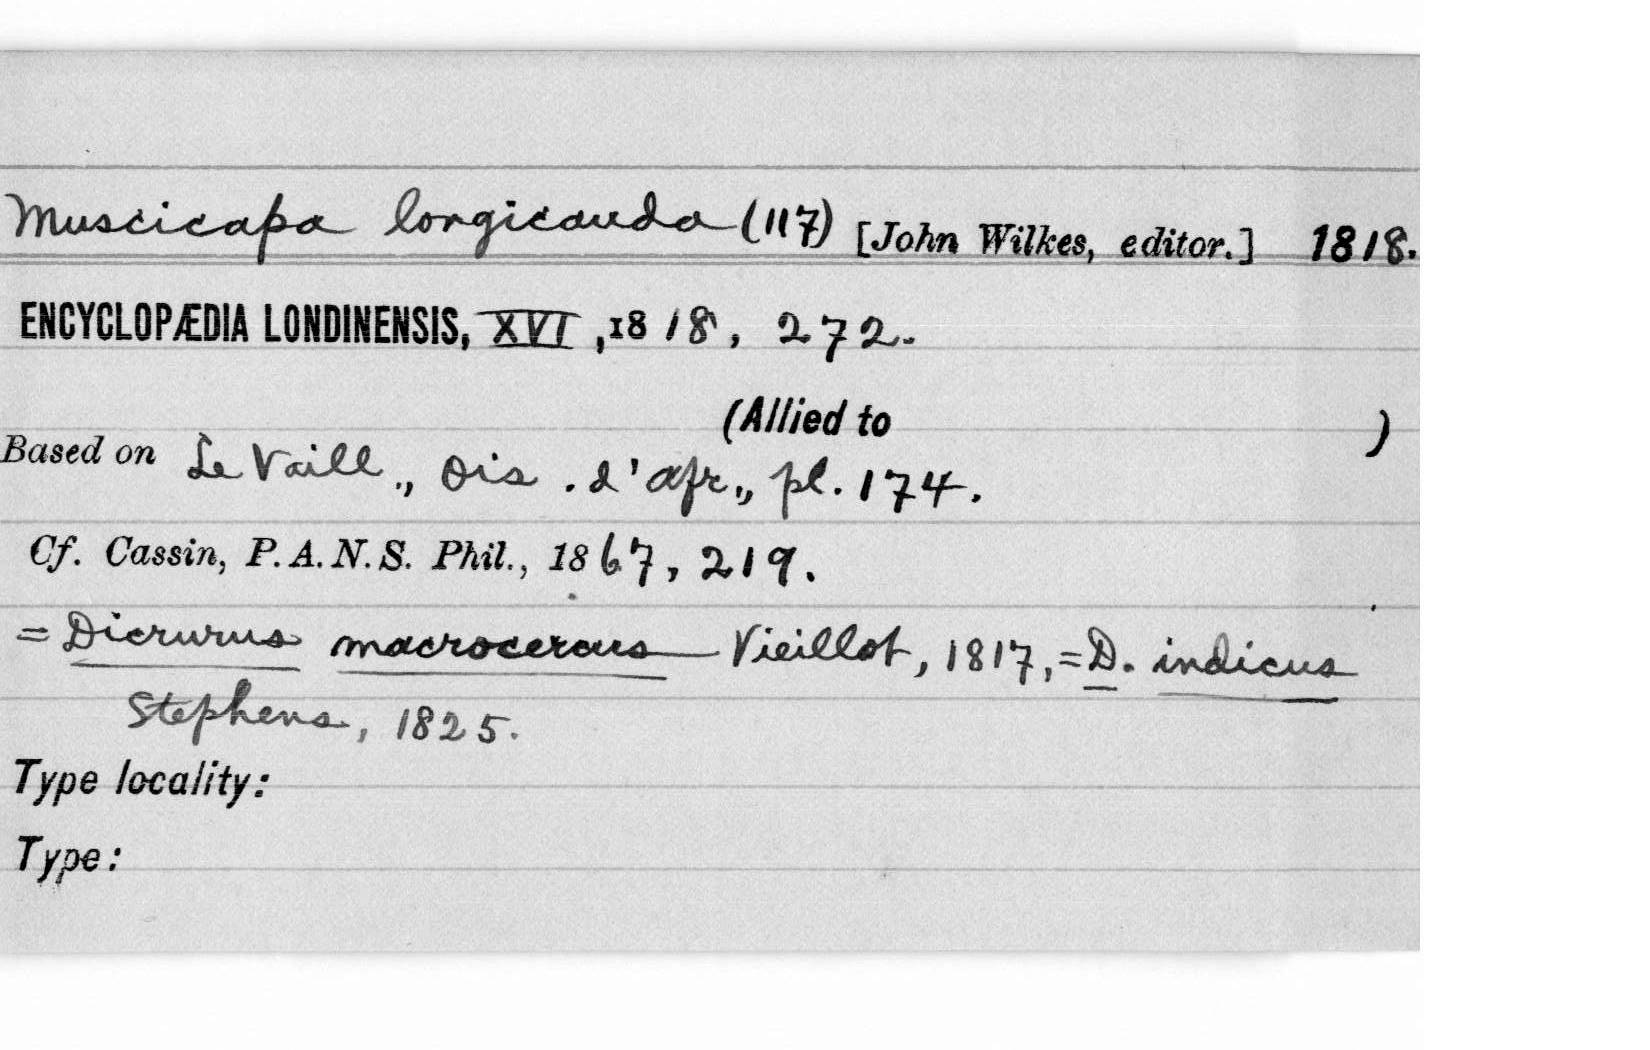 Muscicapa longicauda (117) [John Wilkes, editor.] 1818.
ENCYCLOPÆDIA LONDINENSIS, XVI, 1818, 272.
(Allied to )
Based on Le Vaill., Ois. d'Afr., pl. 174.
Cf. Cassin, P. A. N. S. Phil., 1867, 219.
= Dicrurus macrocercus Vieillot, 1817, = D. indicus
Stephens, 1825.
Type locality:
Type: